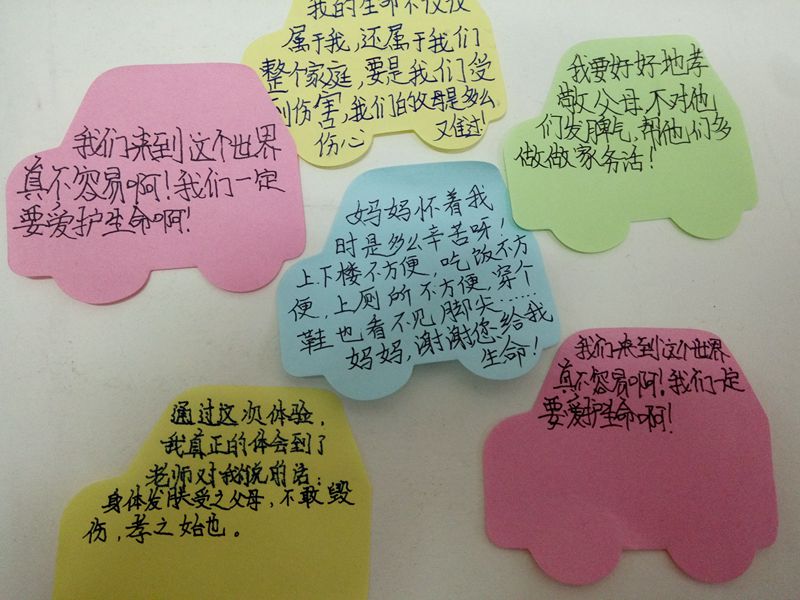 我的生命不仅仅
属于我,还属于我们
整个家庭,要是我们受
到伤害,我们的父母是多么
伤心 又难过!
我要好好地孝
敬父母,不对他
们发脾气,帮他们多
做做家务活!
我们来到这个世界
真不容易啊!我们一定
要爱护生命啊!
妈妈怀着我
时是多么辛苦呀!
上下楼不方便,吃饭不方
便,上厕所不方便,穿个
鞋也看不见脚尖……
妈妈,谢谢您给我
生命!
我们来到这个世界
真不容易啊!我们一定
要爱护生命啊!
通过这次体验,
我真正的体会到了
老师对我们说的话:
身体发肤受之父母,不敢毁
伤,孝之始也。